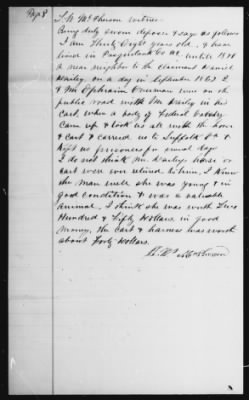 Dep 8
S. W. McPherson witness
Being duly sworn deposes & says as follows
I am Thirty Eight years old, & have
lived in Pasquotank Co NC until 1878
a near neighbor to the claimant Daniel
on a day in September 1863 I
& Mr Ephraim Overman was on the
public road with Mr in his
cart, when a body of Federal Cavalry
came up & took us all with the horse
& cart & carried us to Suffolk Va &
kept us prisoners for several days
I do not think Mr. horse or
cart were ever returned to him, I knew
the mare well she was young & in
good condition & was a valuable
animal, I think she was worth
Hundred & Fifty Dollars in good
money, the cart & harness was worth
about Forty Dollars.